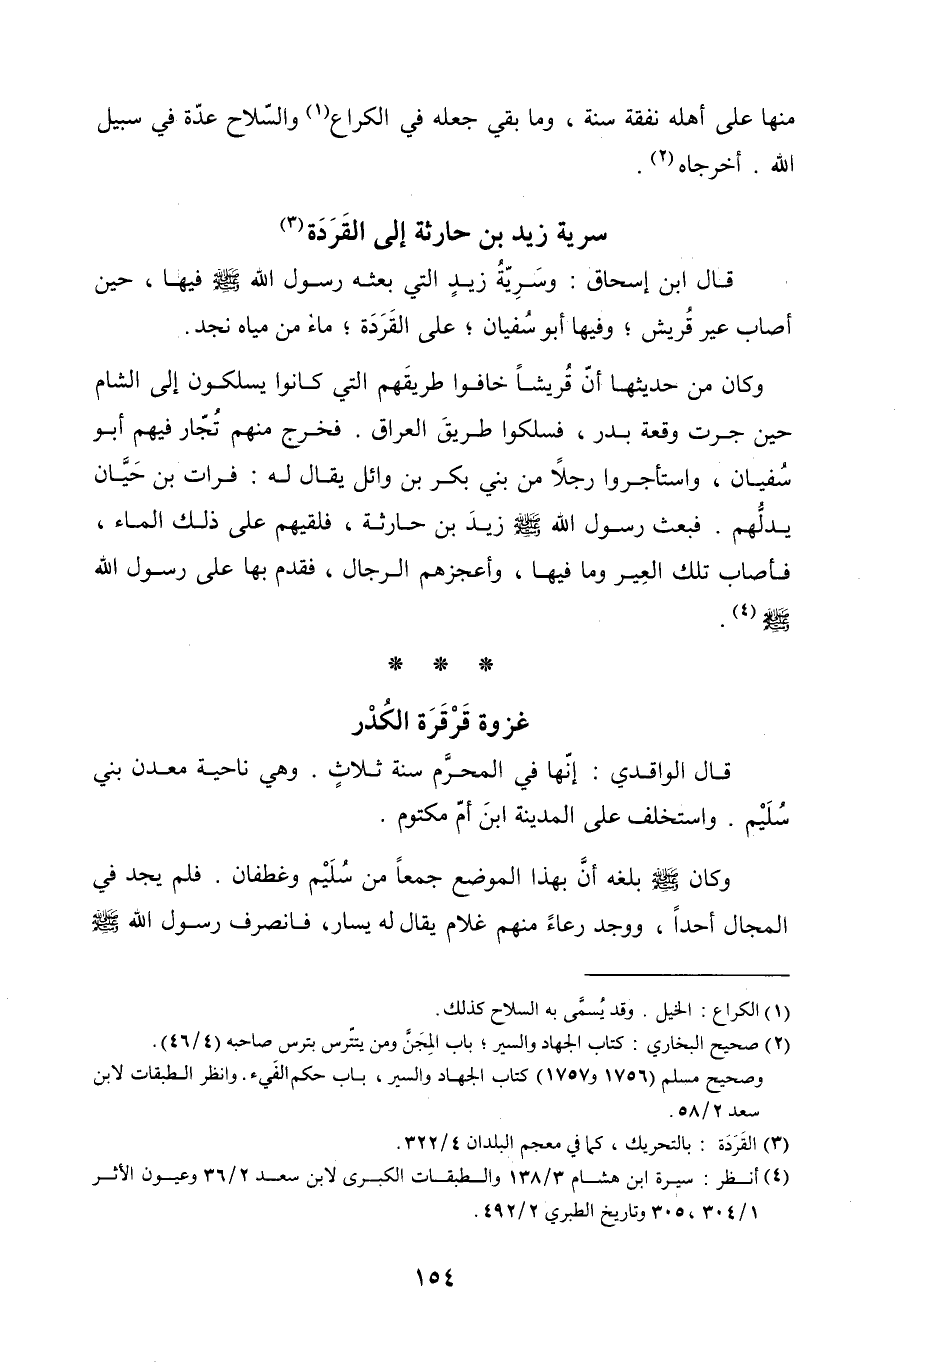 منها على أهله نفقة سنة ، وما بقي جعله في الكراع(١) والسّلاح عدّة في سبيل
الله . أخرجاه(٢) .
سرية زيد بن حارثة إلى القَرَدَة(٣)
قال ابن إسحاق : وسَرِيّةُ زيدٍ التي بعثه رسول الله ﷺ فيها ، حين
أصاب عير قُريش ؛ وفيها أبو سُفيان ؛ على القَرَدَة ؛ ماءٌ من مياه نجد.
وكان من حديثها أنّ قُريشاً خافوا طريقَهم التي كانوا يسلكون إلى الشام
حين جرت وقعة بدر ، فسلكوا طريقَ العراق . فخرج منهم تُجّار فيهم أبو
سُفيان ، واستأجروا رجلاً من بني بكر بن وائل يقال له : فرات بن حَيَّان
يدلُّهم . فبعث رسول الله ﷺ زيدَ بن حارثة ، فلقيهم على ذلك الماء ،
فأصاب تلك العِير وما فيها ، وأعجزهم الرجال ، فقدم بها على رسول الله
ﷺ(٤) .
* * *
غزوة قَرْقَرَة الكُدْر
قال الواقدي : إنّها في المحرَّم سنة ثلاثٍ . وهي ناحية معدن بني
سُلَيْم . واستخلف على المدينة ابنَ أمّ مكتوم .
وكان ﷺ بلغه أنَّ بهذا الموضع جمعاً من سُلَيْم وغطفان . فلم يجد في
المجال أحداً ، ووجد رعاءً منهم غلام يقال له يسار، فانصرف رسول الله ﷺ
(١) الكراع : الخيل . وقد يُسمَّى به السلاح كذلك.
(٢) صحيح البخاري : كتاب الجهاد والسير ؛ باب المِجَنَّ ومن يتتّرس بترس صاحبه (٤٦/٤).
وصحيح مسلم (١٧٥٦ و١٧٥٧) كتاب الجهاد والسير ، باب حكم الفَيء. وانظر الطبقات لابن
سعد ٥٨/٢.
(٣) القَرَدَة : بالتحريك ، كما في معجم البلدان ٣٢٢/٤.
(٤) أنظر : سيرة ابن هشام ١٣٨/٣ والطبقات الكبرى لابن سعد ٣٦/٢ وعيون الأثر
٣٠٤/١ ، ٣٠٥ وتاريخ الطبري ٤٩٢/٢ .
١٥٤